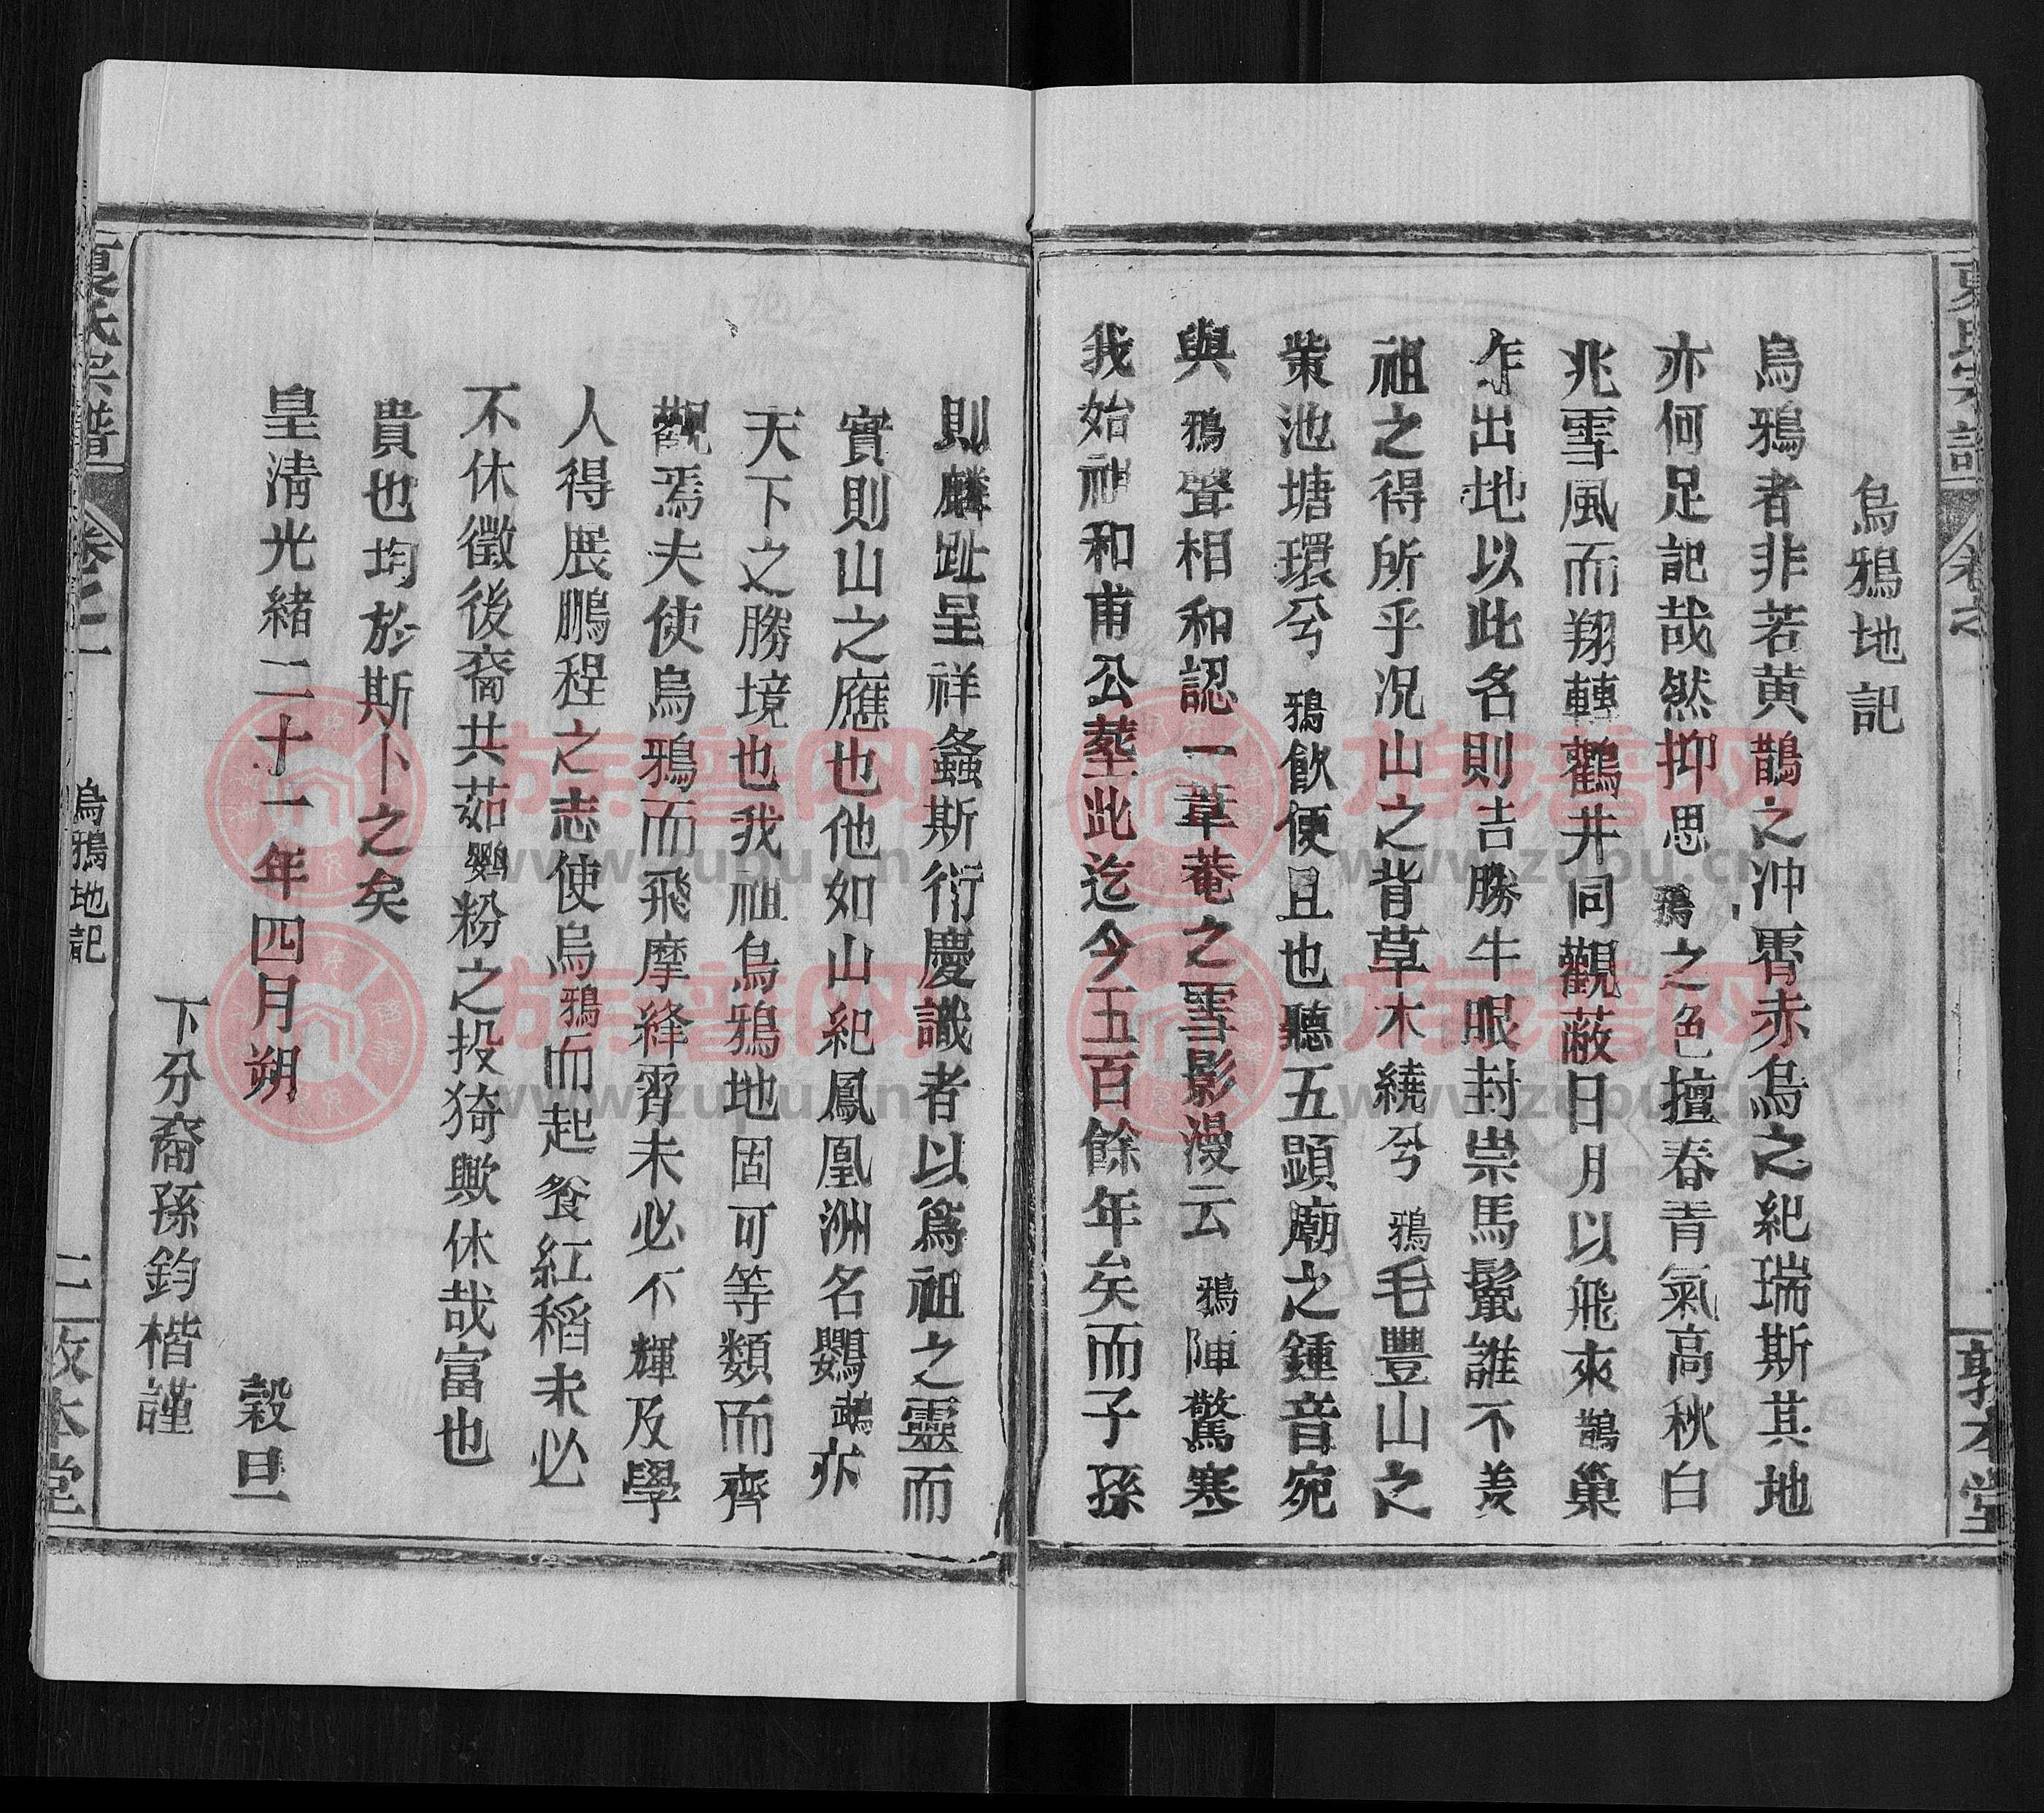 烏鴉地記
烏鴉者非若黄鵲之沖霄赤烏之紀瑞斯其地
亦何足記哉然抑思鴉之色擅春青氣高秋白
兆雪風而翔轉鶴井同觀蔽日月以飛來鵲巢
乍出地以此名則吉勝牛眠封崇馬鬣誰不羡
祖之得所乎况山之背草木繞兮鴉毛豐山之
柴池塘環兮鴉飲便且也聽五顕廟之鍾音宛
與鴉聲相和認一葦菴之雪影漫云鴉陣驚寒
我始祖和甫公塟此迄今五百餘年矣而子孫
則麟趾呈祥螽斯衍慶識者以爲祖之靈而
實則山之應也他如山紀鳳凰洲名鸚鵡亦
天下之勝境也我祖烏鴉地固可等類而齊
觀焉夫使烏鴉而飛摩絳霄未必不輝及學
人得展鵬程之志使烏鴉而起餐紅稻未必
不休徵後裔共茹鸚粉之投猗歟休哉富也
貴也均於斯卜之矣
皇清光緒二十一年四月朔 穀旦
下分裔孫鈞楷謹
氏宗譜 卷之一 烏鴉地記 二 敦本堂
www.zupu.cn
族譜网